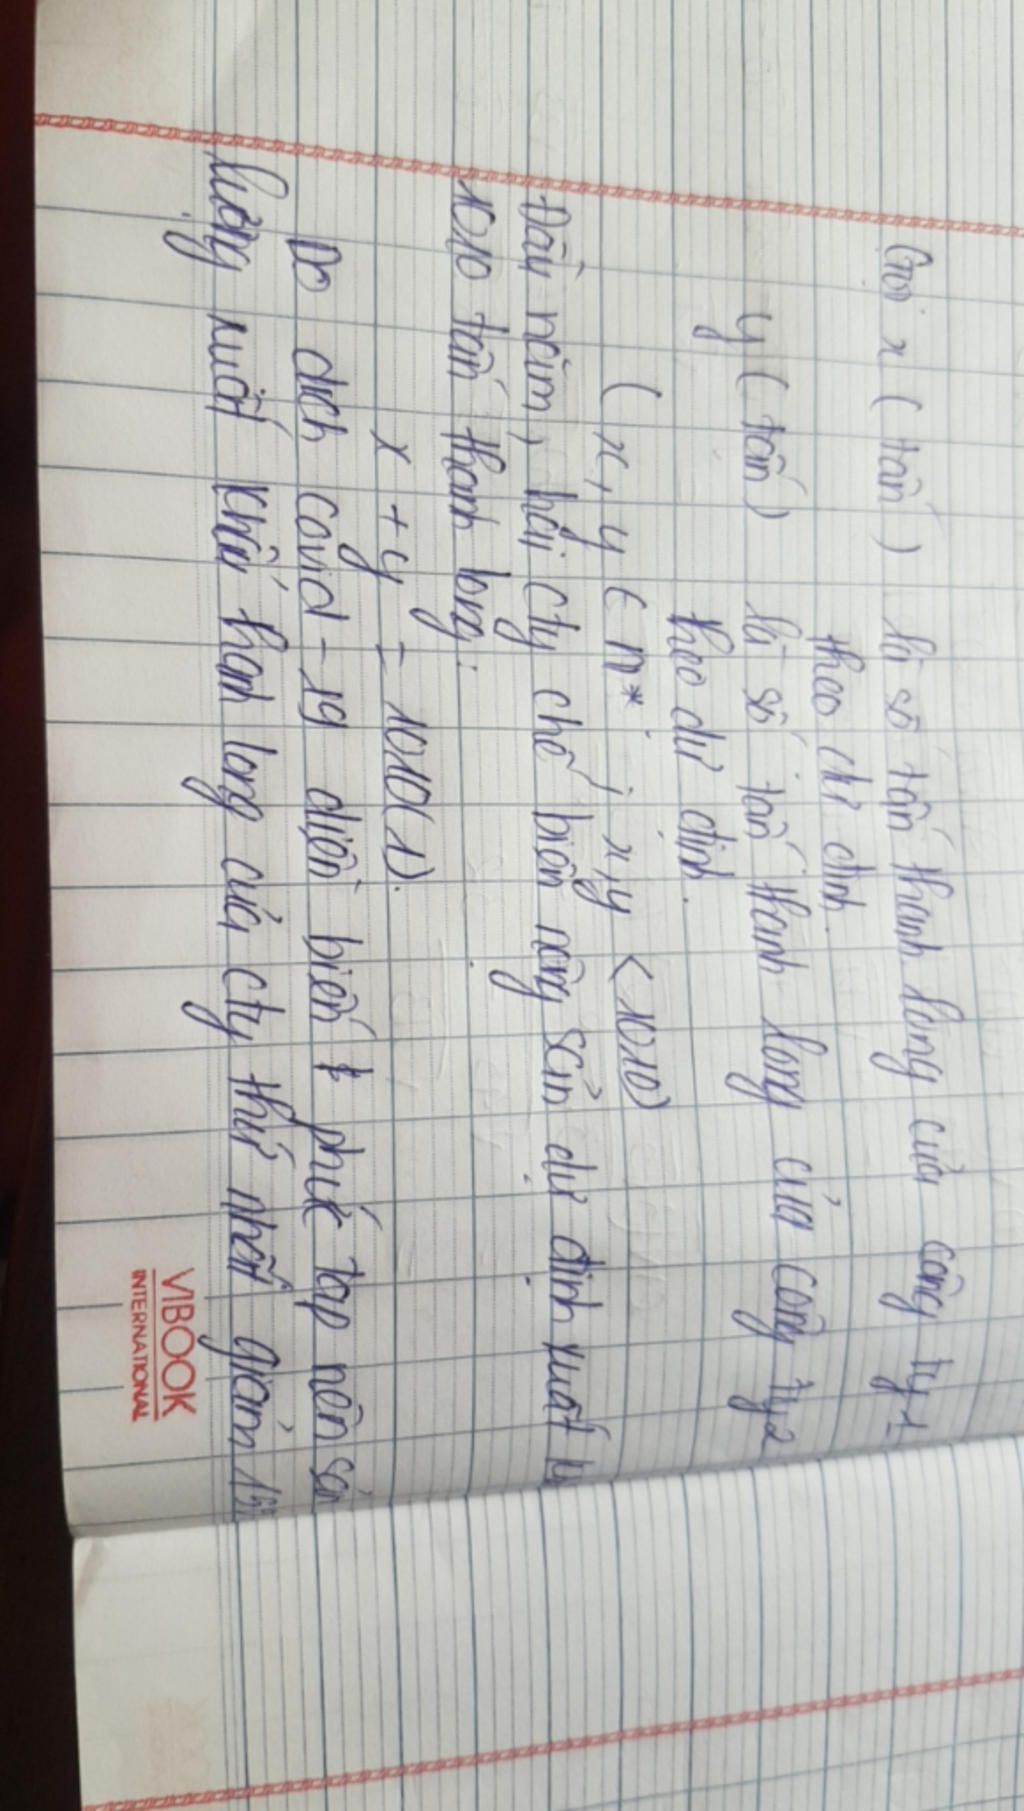 Gọi x (tấn) là số tấn thanh long của công ty 1
theo dự định.
y (tấn) là số tấn thanh long của công ty 2
theo dự định.
( x, y ∈ N* ; x, y < 1010)
Đầu năm, hai cty chế biến nông sản dự định xuất
1010 tấn thanh long:
x + y = 1010(1).
Do dịch covid-19 diễn biến phức tạp nên
lượng xuất khẩu thanh long của cty thứ nhất giảm
VIBOOK
INTERNATIONAL